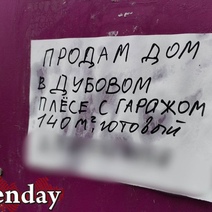 ПРОДАМ ДОМ
В ДУБОВОМ
ПЛЁСЕ С ГАРАЖОМ
140 м², готовый
enday